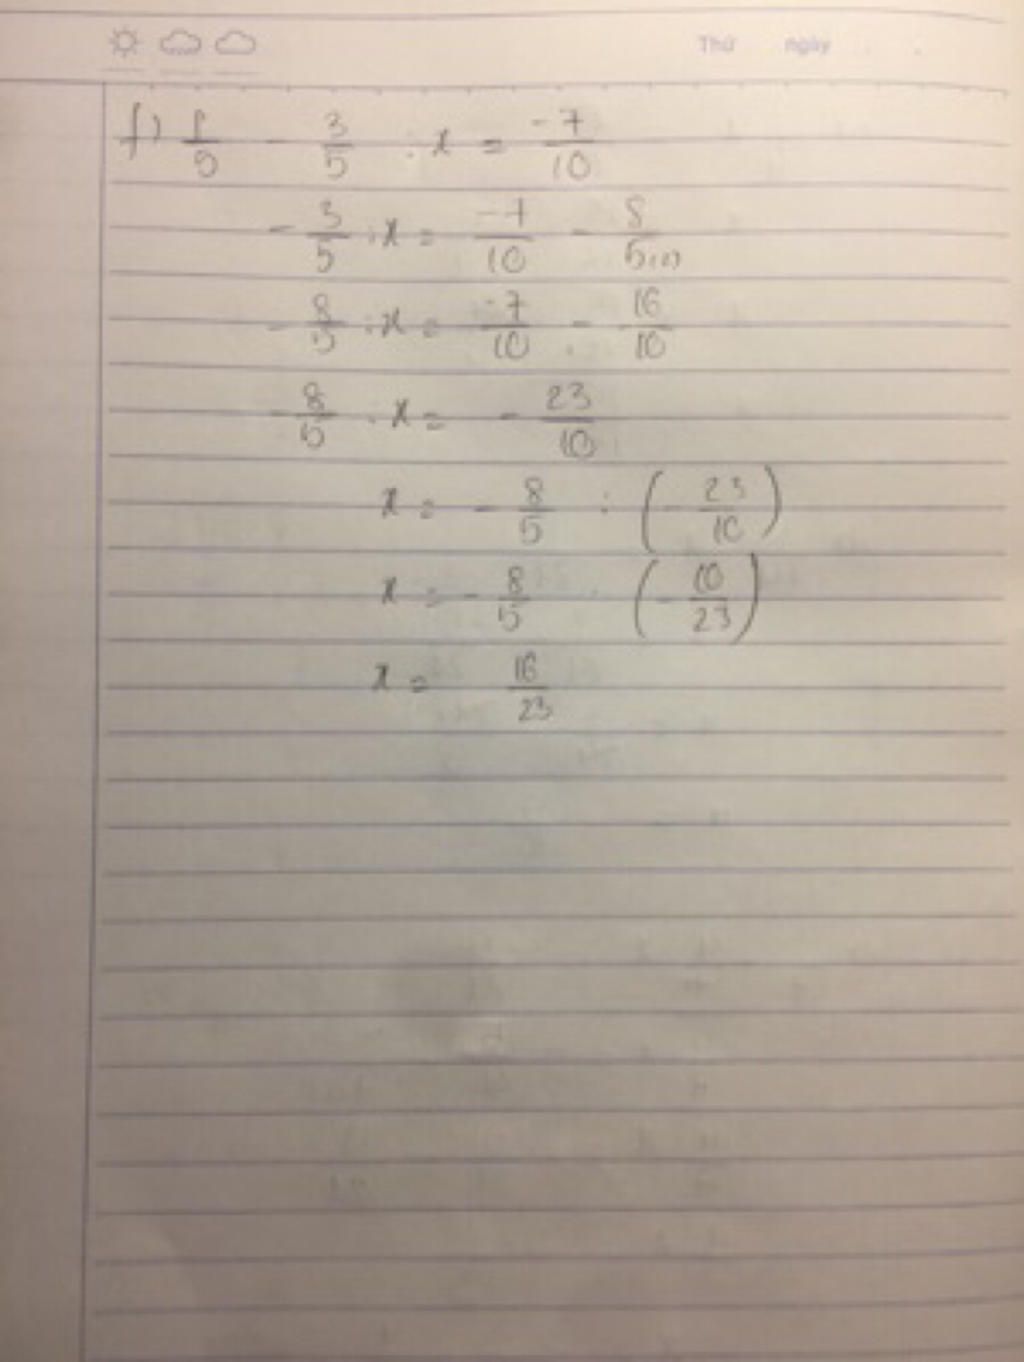 Thứ ngày
f) 8/5 - 3/5 : x = -7/10
- 3/5 : x = -7/10 - 8/5(2)
- 8/5 : x = -7/10 - 16/10
- 8/5 : x = - 23/10
x = - 8/5 : (- 23/10)
x = - 8/5 . (- 10/23)
x = 16/23